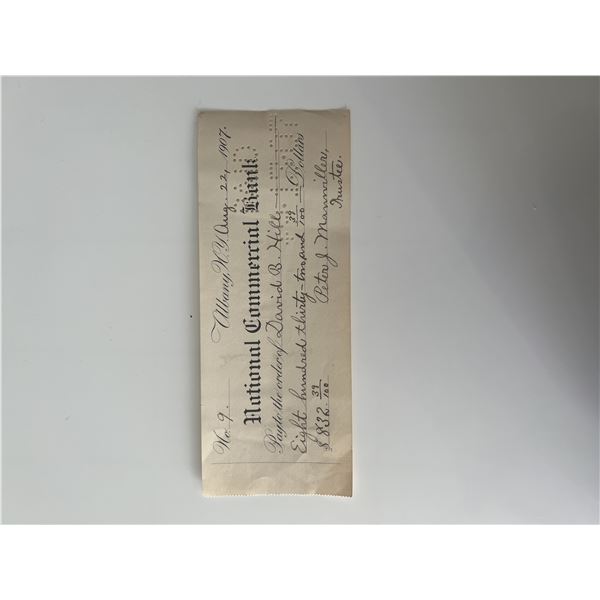 No. 9 Albany, N.Y. Aug. 22, 1907.
National Commercial Bank
Pay to the order of David B. Hill
Eight hundred thirty-two and 39/100 Dollars
$832 39/100 Peter J. Manwiller,
Trustee.